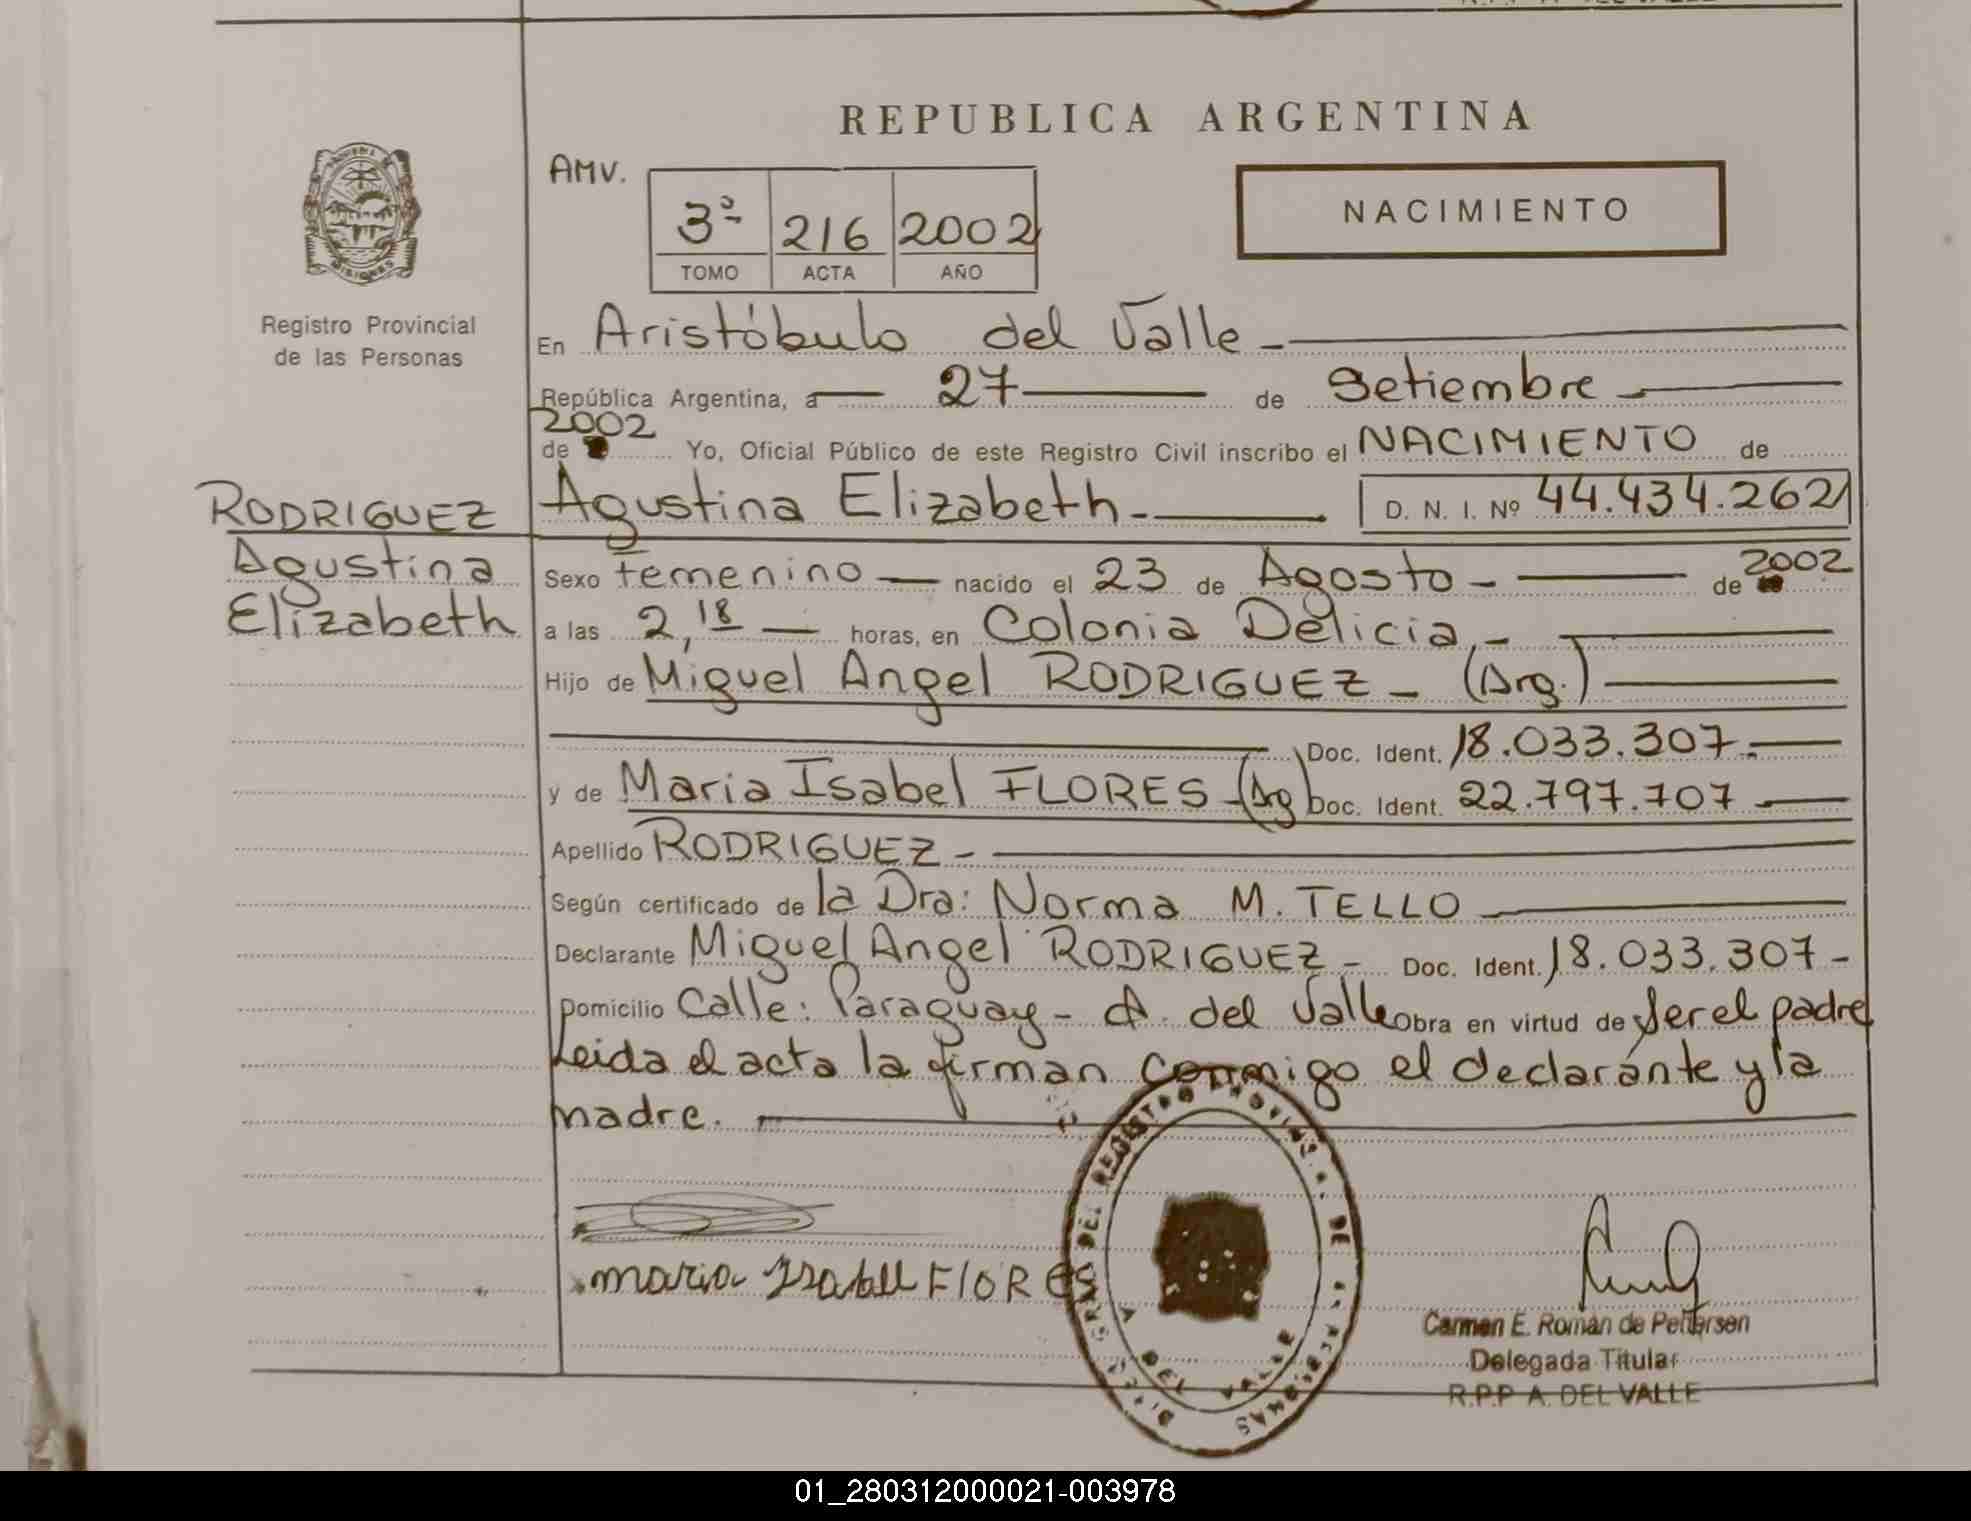 REPUBLICA ARGENTINA
AMV.
3º 216 2002
TOMO ACTA AÑO
NACIMIENTO
MISIONES
Registro Provincial
de las Personas
En Aristóbulo del Valle
República Argentina, a 27 de Setiembre
2002
de Yo, Oficial Público de este Registro Civil inscribo el NACIMIENTO de
RODRIGUEZ
Agustina
Elizabeth
Agustina Elizabeth D. N. I. Nº 44.434.262
Sexo femenino nacido el 23 de Agosto de 2002
a las 2,18 horas, en Colonia Delicia
Hijo de Miguel Angel RODRIGUEZ (Arg.)
Doc. Ident. 18.033.307
y de Maria Isabel FLORES (Arg) Doc. Ident. 22.797.707
Apellido RODRIGUEZ
Según certificado de la Dra: Norma M. TELLO
Declarante Miguel Angel RODRIGUEZ Doc. Ident. 18.033.307
Domicilio Calle: Paraguay - A. del Valle Obra en virtud de Ser el padre
Leida el acta la firman conmigo el declarante y la
madre.
maria Isabel FlORES
DEL REGISTRO PROVINCIAL DE LAS PERSONAS
A DEL VALLE
Carmen E. Román de Pettersen
Delegada Titular
R.P.P A. DEL VALLE
01_280312000021-003978